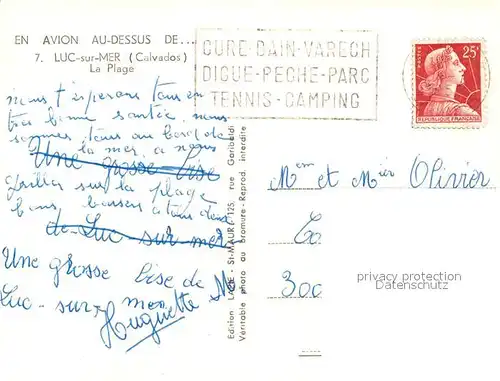 EN AVION AU-DESSUS DE...
7. LUC-sur-MER (Calvados)
La Plage
CURE-BAIN-VARECH
DIGUE-PECHE-PARC
TENNIS-CAMPING
POSTES
25F
REPUBLIQUE FRANÇAISE
nous t'esperons tous en
tres bonne santée, nous
sommes tous au bord de
la mer a nous
Une grosse bise
griller sur la plage
bons baisers a tous deux
de Luc sur mer
Une grosse bise de
Luc-sur-mer
Huguette
Edition LAPIE - St-MAUR 125, rue Garibaldi
Véritable photo au bromure - Reprod. interdite
Mem et Mier Olivier
To
300
privacy protection
Datenschutz